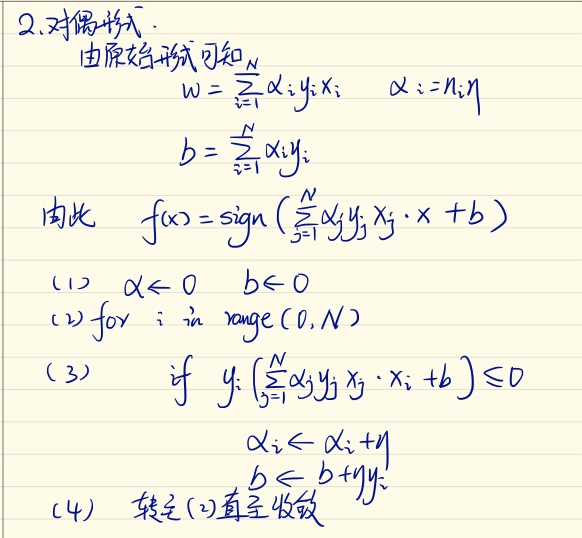 2.对偶形式.
由原始形式可知
w = Σ_{i=1}^{N} α_i y_i x_i    α_i = n_i η
b = Σ_{i=1}^{N} α_i y_i
由此 f(x) = sign ( Σ_{j=1}^{N} α_j y_j x_j · x + b )
(1) α ← 0    b ← 0
(2) for i in range (0, N)
(3) if y_i ( Σ_{j=1}^{N} α_j y_j x_j · x_i + b ) ≤ 0
α_i ← α_i + η
b ← b + η y_i
(4) 转至(2)直至收敛